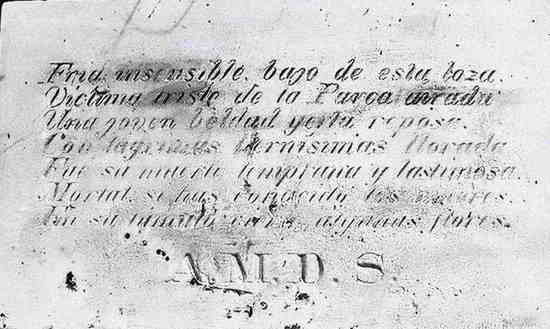 Fria insensible, bajo de esta loza.
Victima triste de la Parca airada
Una joven beldad yerta reposa.
Con lagrimas ternisimas llorada
Fue su muerte temprana y lastimosa.
Mortal, si has conocido los amores.
En su tumba algunas flores.
A. M. D. S.